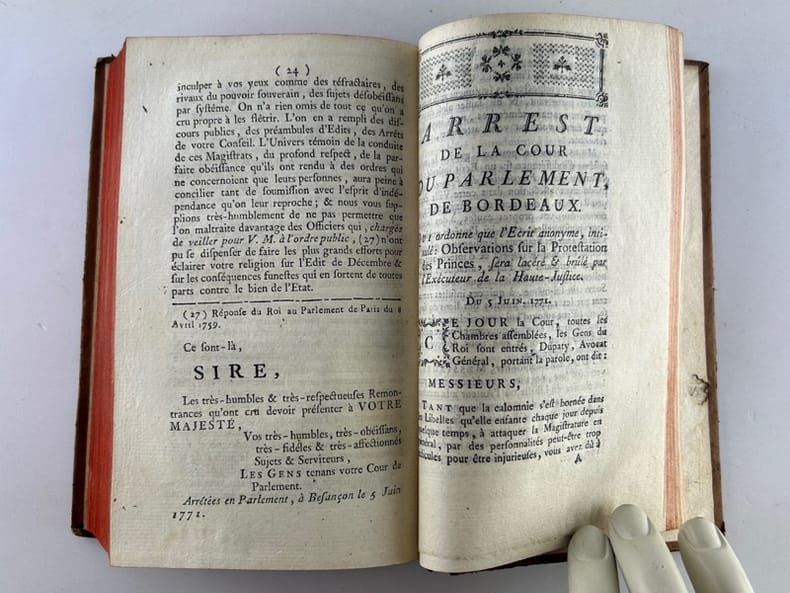 ( 24 )
inculper à vos yeux comme des réfractaires, des
rivaux du pouvoir souverain, des sujets désobéissans
par systême. On n'a rien omis de tout ce qu'on a
cru propre à les flétrir. L'on en a rempli des dis-
cours publics, des préambules d'Edits, des Arrêts
de votre Conseil. L'Univers témoin de la conduite
de ces Magistrats, du profond respect, de la par-
faite obéissance qu'ils ont rendu à des ordres qui
ne concernoient que leurs personnes, aura peine à
concilier tant de soumission avec l'esprit d'indé-
pendance qu'on leur reproche; & nous vous sup-
plions très-humblement de ne pas permettre que
l'on maltraite davantage des Officiers qui, chargés
de veiller pour V. M. à l'ordre public, (27) n'ont
pu se dispenser de faire les plus grands efforts pour
éclairer votre religion sur l'Edit de Décembre &
sur les conséquences funestes qui en sortent de toutes
parts contre le bien de l'Etat.
(27) Réponse du Roi au Parlement de Paris du 8
Avril 1759.
Ce sont-là,
SIRE,
Les très-humbles & très-respectueuses Remon-
trances qu'ont cru devoir présenter à VOTRE
MAJESTÉ,
Vos très-humbles, très-obéissans,
très-fidéles & très-affectionnés
Sujets & Serviteurs,
LES GENS tenans votre Cour de
Parlement.
Arrêtées en Parlement, à Besançon le 5 Juin
1771.
ARREST
DE LA COUR
DU PARLEMENT,
DE BORDEAUX.
Qui ordonne que l'Ecrit anonyme, inti-
tulé: Observations sur la Protestation
des Princes, sera lacéré & brûlé par
l'Exécuteur de la Haute-Justice.
DU 5 JUIN. 1771.
CE JOUR la Cour, toutes les
Chambres assemblées, les Gens du
Roi sont entrés, Dupaty, Avocat
Général, portant la parole, ont dit:
MESSIEURS,
TANT que la calomnie s'est bornée dans
Libelles qu'elle enfante chaque jour depuis
quelque temps, à attaquer la Magistrature en
général, par des personnalités peut-être trop
ridicules pour être injurieuses, vous avez dû à
A